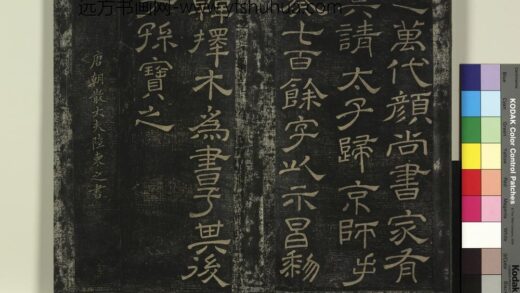 远方书画网
萬代顏尚書家有
請 太子歸京師手
七百餘字以示昌黎
韓擇木為書子其後
孫寶之
唐朝散大夫陸柬之書
KODAK Color Control Patches
Kodak